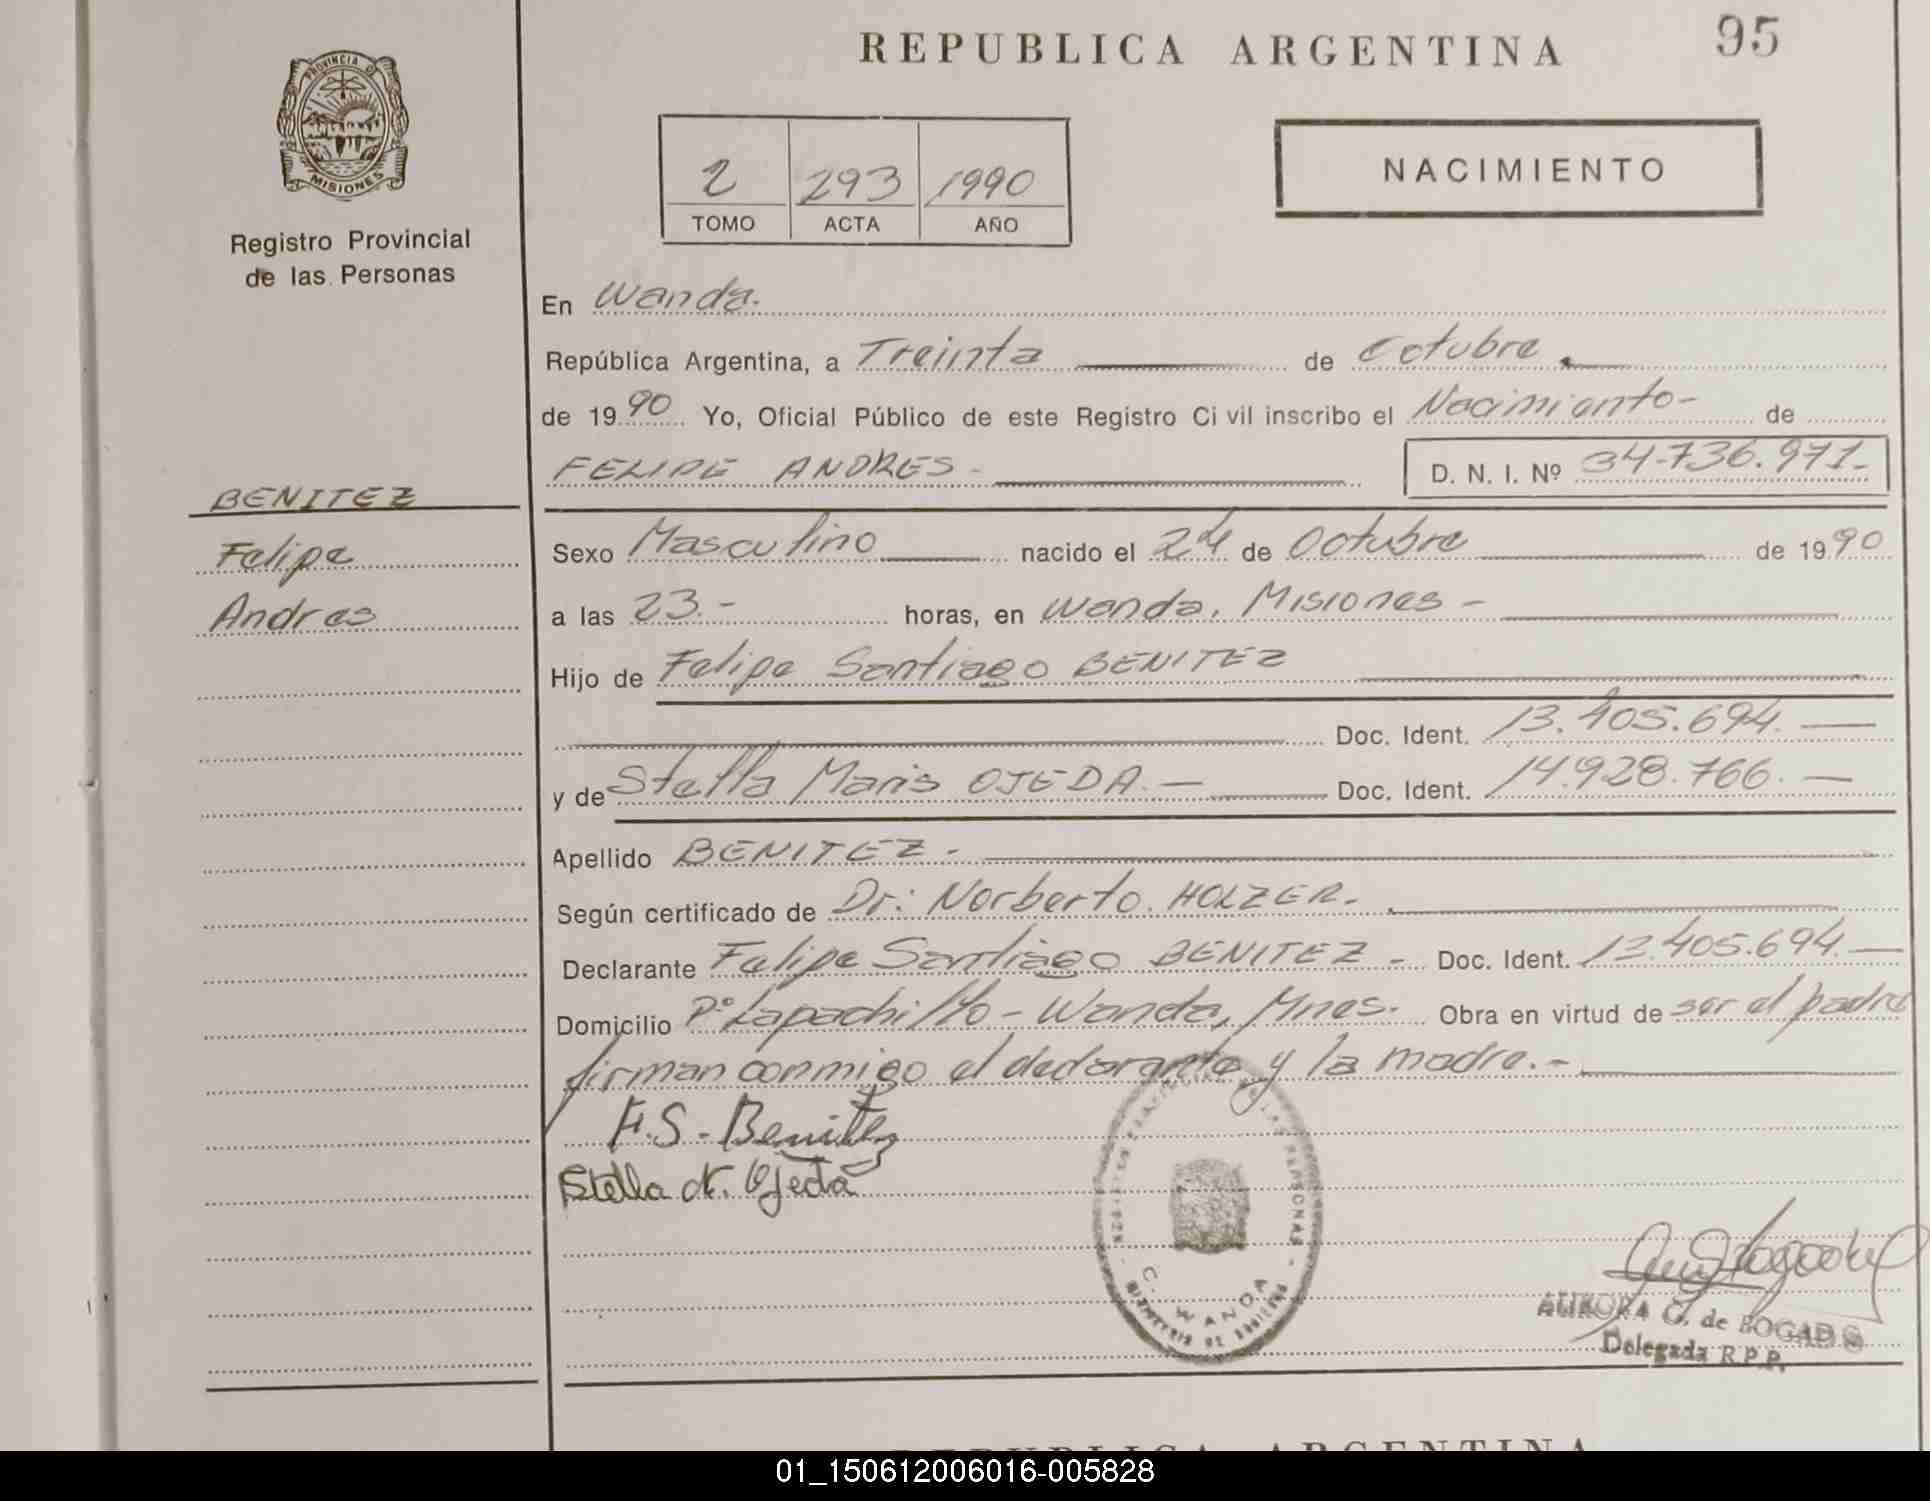 REPUBLICA ARGENTINA
95
PROVINCIA D
MISIONES
Registro Provincial
de las Personas
2 293 1990
TOMO ACTA AÑO
NACIMIENTO
En Wanda.
República Argentina, a Treinta de Octubre
de 1990 Yo, Oficial Público de este Registro Civil inscribo el Nacimiento- de
FELIPE ANDRES- D. N. I. Nº 34.736.971.-
BENITEZ
Felipe
Andres
Sexo Masculino nacido el 24 de Octubre de 1990
a las 23.- horas, en Wanda, Misiones-
Hijo de Felipe Santiago BENITEZ
Doc. Ident. 13.405.694.—
y de Stella Maris OJEDA.— Doc. Ident. 14.928.766.—
Apellido BENITEZ.-
Según certificado de Dr: Norberto HOLZER.
Declarante Felipe Santiago BENITEZ- Doc. Ident. 13.405.694.—
Domicilio Pº Lapachillo-Wanda, Mnes. Obra en virtud de ser el padre
firman conmigo el declarante y la madre.-
F.S-Benitez
Stella M. Ojeda
LAS PERSONAS
C. WANDA
AURORA G. de BOGADO
Delegada R.P.P.
REPUBLICA ARGENTINA
01_150612006016-005828